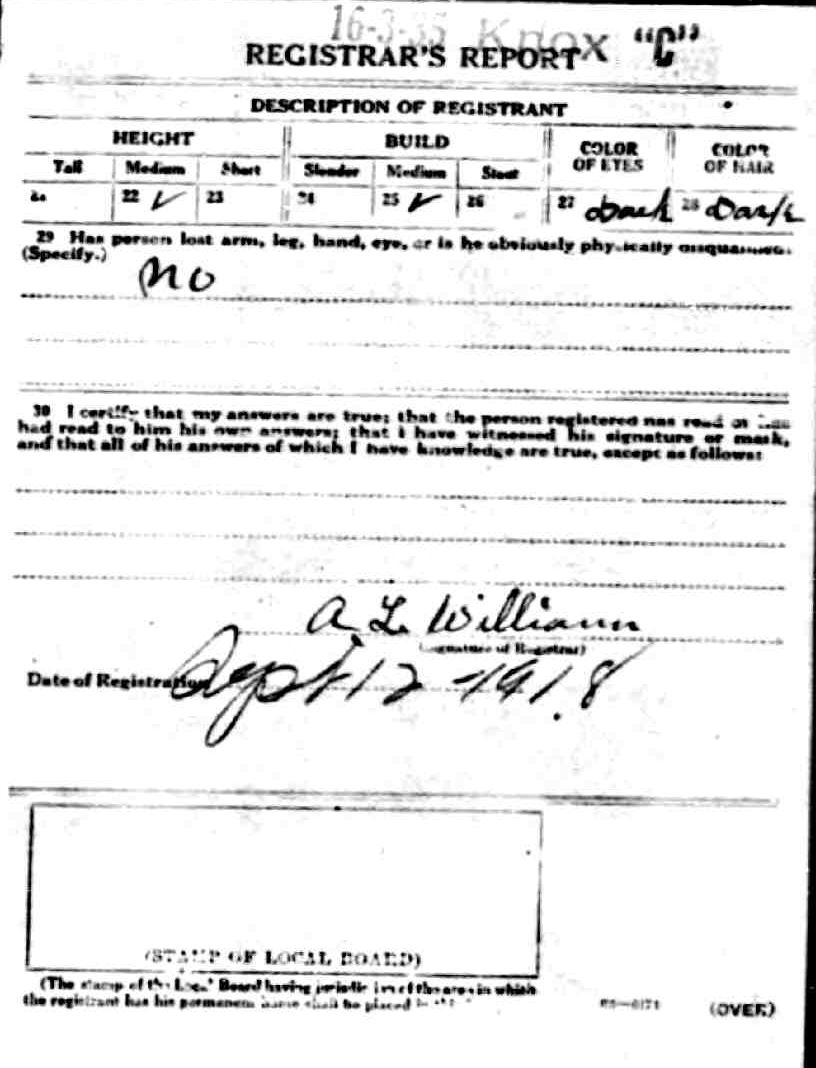 16-3-35 Knox "C"
REGISTRAR'S REPORT
DESCRIPTION OF REGISTRANT
HEIGHT BUILD COLOR OF EYES COLOR OF HAIR
Tall Medium Short Slender Medium Stout
22 ✓ 23 24 25 ✓ 26 27 Dark 28 Dark
29 Has person lost arm, leg, hand, eye, or is he obviously physically disqualified?
(Specify.)
No
30 I certify that my answers are true; that the person registered has read or has
had read to him his own answers; that I have witnessed his signature or mark,
and that all of his answers of which I have knowledge are true, except as follows:
A L William
(Signature of Registrar)
Date of Registration Sept 12 - 1918
(STAMP OF LOCAL BOARD)
(The stamp of the Local Board having jurisdiction of the area in which
the registrant has his permanent home shall be placed in
(OVER)